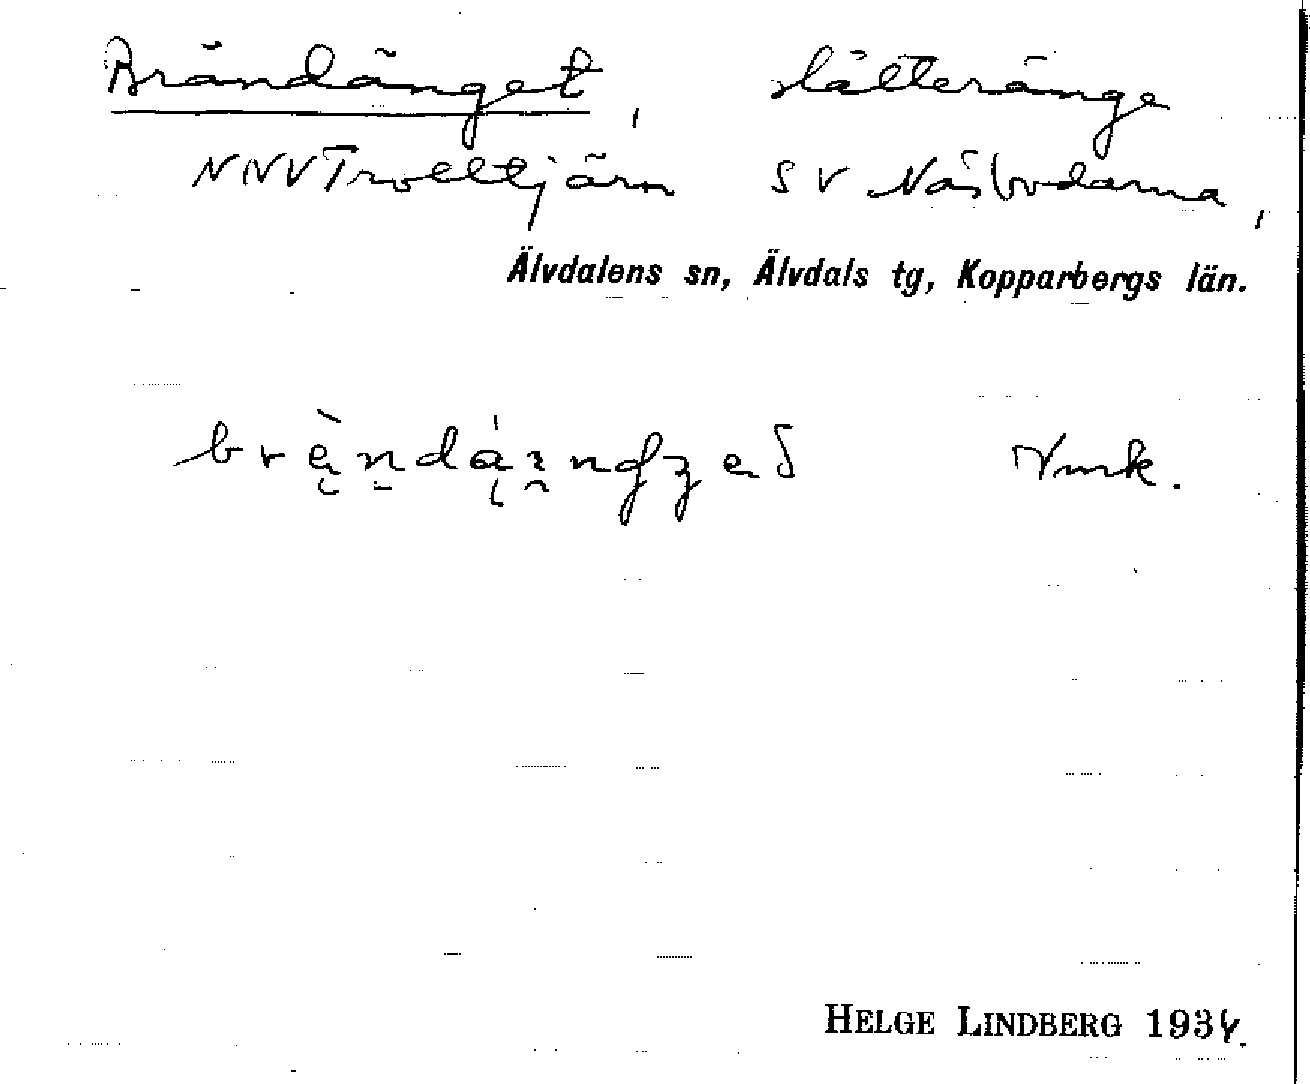 Brändänget, slåtteränge
NNV Trolltjärn SV Näsbodarna,
Älvdalens sn, Älvdals tg, Kopparbergs län.
Nmk.
HELGE LINDBERG 1934.